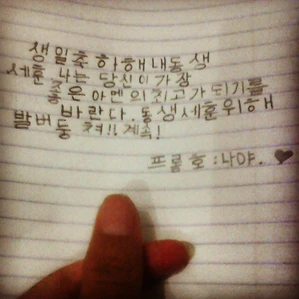 생일축하해내동생
세훈 나는 당신이가상
좋은 아멘의최고가되기를
바란다.동생세훈위해
발버둥 쳐!! 계속!
프롬호:나야. ❤